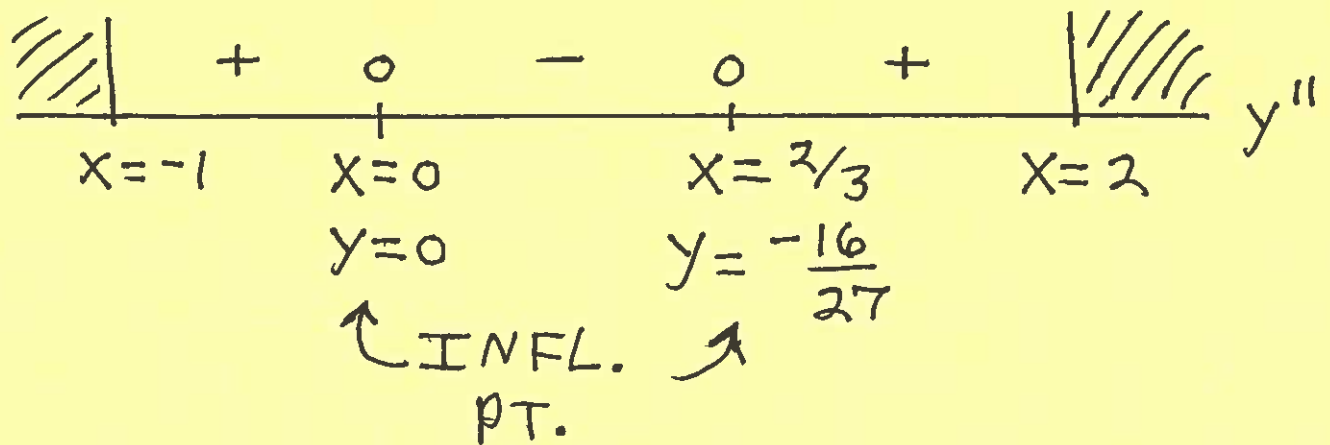 + 0 - 0 +
y"
x=-1 x=0 x=2/3 x=2
y=0 y=-16/27
INFL.
PT.